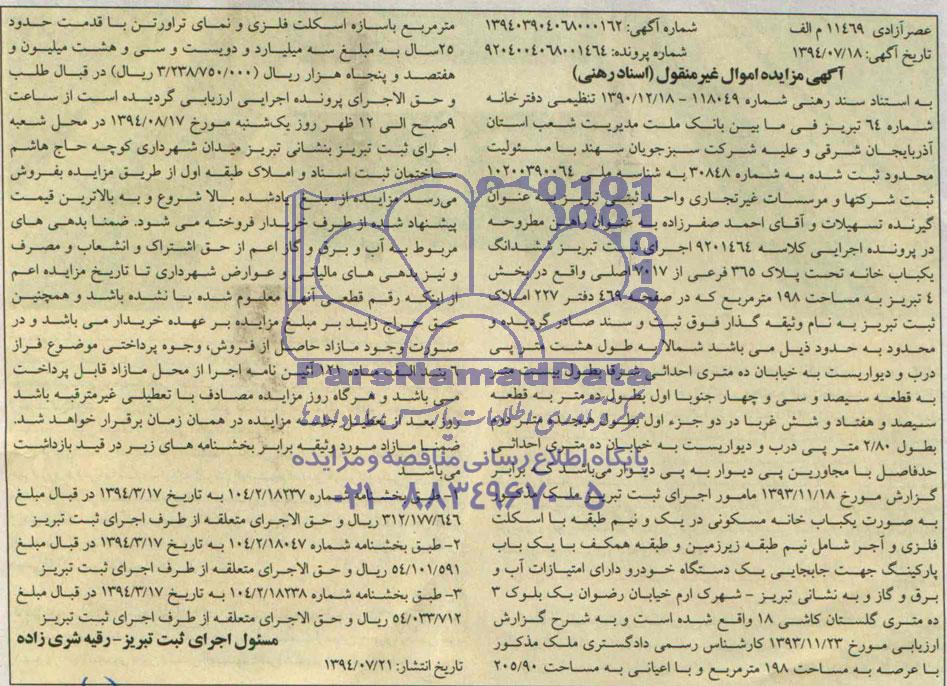 عصرآزادی ۱۱۴۶۹ م الف
شماره آگهی: ۱۳۹۴۰۳۹۰۴۰۶۸۰۰۰۱۶۲
تاریخ آگهی: ۱۳۹۴/۰۷/۱۸
شماره پرونده: ۹۲۰۴۰۰۴۰۶۸۰۰۱۴۶۴
آگهی مزایده اموال غیرمنقول (اسناد رهنی)
به استناد سند رهنی شماره ۱۱۸۰۴۹ - ۱۳۹۰/۱۲/۱۸ تنظیمی دفترخانه
شماره ۶۴ تبریز فی ما بین بانک ملت مدیریت شعب استان
آذربایجان شرقی و علیه شرکت سبزجویان سهند با مسئولیت
محدود ثبت شده به شماره ۳۰۸۴۸ به شناسه ملی ۱۰۲۰۰۳۹۰۰۶۴
ثبت شرکتها و موسسات غیرتجاری واحد ثبتی تبریز به عنوان
گیرنده تسهیلات و آقای احمد صفرزاده به عنوان راهن مطروحه
در پرونده اجرایی کلاسه ۹۲۰۱۴۶۴ اجرای ثبت تبریز ششدانگ
یکباب خانه تحت پلاک ۳۶۵ فرعی از ۷۰۱۷ اصلی واقع در بخش
۴ تبریز به مساحت ۱۹۸ مترمربع که در صفحه ۴۶۹ دفتر ۲۲۷ املاک
ثبت تبریز به نام وثیقه گذار فوق ثبت و سند صادر گردیده و
محدود به حدود ذیل می باشد شمالا به طول هشت متر پی
درب و دیواریست به خیابان ده متری احداثی شرقا بطول بیست متر
به قطعه سیصد و سی و چهار جنوبا اول بطول ده متر به قطعه
سیصد و هفتاد و شش غربا در دو جزء اول بطول هیجده متر دوم
بطول ۲/۸۰ متر پی درب و دیواریست به خیابان ده متری احداثی
حدفاصل با مجاورین پی دیوار به پی دیوار می‌باشد که برابر
گزارش مورخ ۱۳۹۳/۱۱/۱۸ مامور اجرای ثبت تبریز ملک مذکور
به صورت یکباب خانه مسکونی در یک و نیم طبقه با اسکلت
فلزی و آجر شامل نیم طبقه زیرزمین و طبقه همکف با یک باب
پارکینگ جهت جابجایی یک دستگاه خودرو دارای امتیازات آب و
برق و گاز و به نشانی تبریز - شهرک ارم خیابان رضوان یک بلوک ۳
ده متری گلستان کاشی ۱۸ واقع شده است و به شرح گزارش
ارزیابی مورخ ۱۳۹۳/۱۱/۲۳ کارشناس رسمی دادگستری ملک مذکور
با عرصه به مساحت ۱۹۸ مترمربع و با اعیانی به مساحت ۲۰۵/۹۰
مترمربع باسازه اسکلت فلزی و نمای تراورتن با قدمت حدود
۲۵سال به مبلغ سه میلیارد و دویست و سی و هشت میلیون و
هفتصد و پنجاه هزار ریال (۳/۲۳۸/۷۵۰/۰۰۰ ریال) در قبال طلب
و حق الاجرای پرونده اجرایی ارزیابی گردیده است از ساعت
۹صبح الی ۱۲ ظهر روز یک‌شنبه مورخ ۱۳۹۴/۰۸/۱۷ در محل شعبه
اجرای ثبت تبریز بنشانی تبریز میدان شهرداری کوچه حاج هاشم
ساختمان ثبت اسناد و املاک طبقه اول از طریق مزایده بفروش
می‌رسد مزایده از مبلغ یادشده بالا شروع و به بالاترین قیمت
پیشنهاد شده از طرف خریدار فروخته می شود. ضمنا بدهی های
مربوط به آب و برق و گاز اعم از حق اشتراک و انشعاب و مصرف
و نیز بدهی های مالیاتی و عوارض شهرداری تا تاریخ مزایده اعم
از اینکه رقم قطعی آنها معلوم شده یا نشده باشد و همچنین
حق حراج زاید بر مبلغ مزایده بر عهده خریدار می باشد و در
صورت وجود مازاد حاصل از فروش، وجوه پرداختی موضوع فراز
۶ بند الف ماده ۱۲۱ آئین نامه اجرا از محل مازاد قابل پرداخت
می باشد و هرگاه روز مزایده مصادف با تعطیلی غیرمترقبه باشد
روز بعد از تعطیلی جلسه مزایده در همان زمان برقرار خواهد شد.
ضمنا مازاد مورد وثیقه برابر بخشنامه های زیر در قید بازداشت
می‌باشد.
۱- طبق بخشنامه شماره ۱۰۴/۲/۱۸۲۳۷ به تاریخ ۱۳۹۴/۳/۱۷ در قبال مبلغ
۳۱۲/۱۷۷/۶۴۶ ریال و حق الاجرای متعلقه از طرف اجرای ثبت تبریز
۲- طبق بخشنامه شماره ۱۰۴/۲/۱۸۰۴۷ به تاریخ ۱۳۹۴/۳/۱۷ در قبال مبلغ
۵۴/۱۰۱/۵۹۱ ریال و حق الاجرای متعلقه از طرف اجرای ثبت تبریز
۳- طبق بخشنامه شماره ۱۰۴/۲/۱۸۲۳۸ به تاریخ ۱۳۹۴/۳/۱۷ در قبال مبلغ
۵۴/۰۳۳/۷۱۲ ریال و حق الاجرای متعلقه از طرف اجرای ثبت تبریز
مسئول اجرای ثبت تبریز-رقیه شری زاده
تاریخ انتشار: ۱۳۹۴/۰۷/۲۱
ParsNamadData
پایگاه اطلاع رسانی مناقصه و مزایده
۰۲۱-۸۸۳۴۹۶۷۰-۵